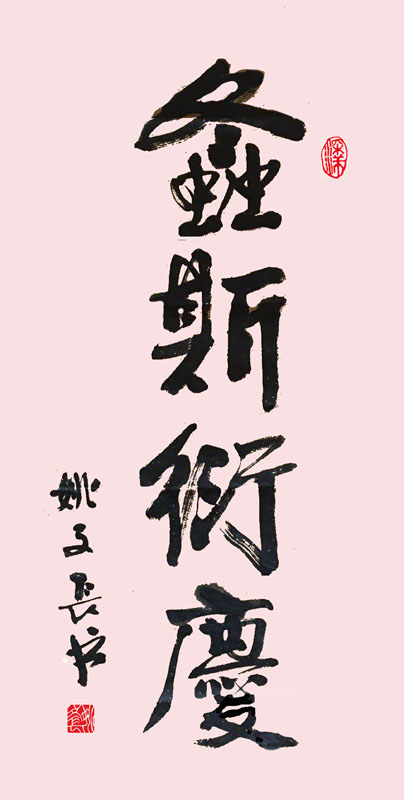 螽斯衍慶
姚文長书